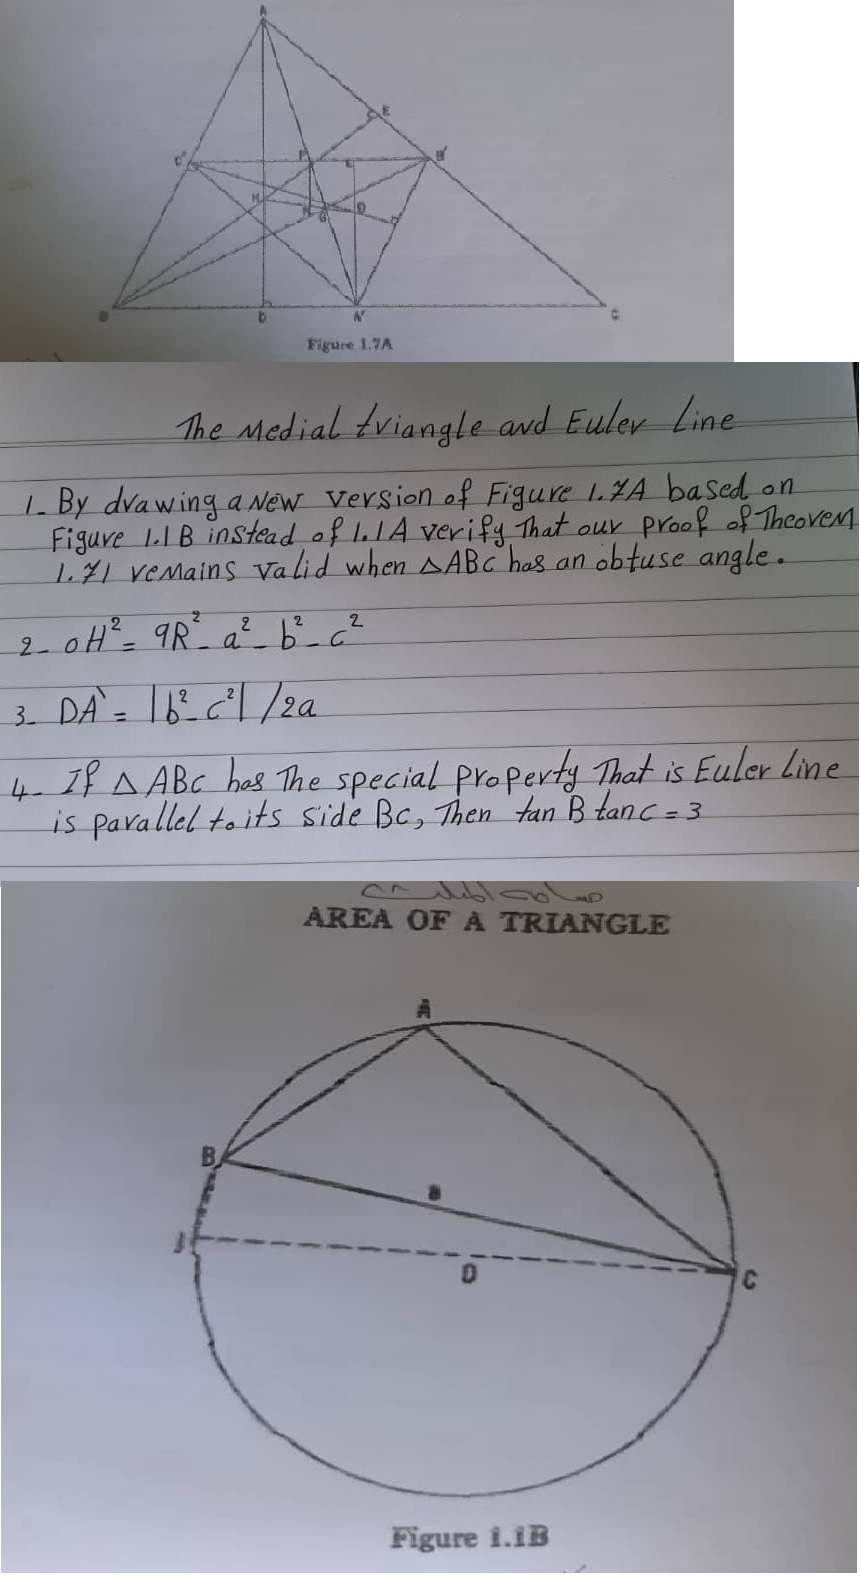 A
E
C'
F
L
B'
H
N
G
O
B
D
A'
C
Figure 1.7A
The Medial triangle and Euler Line
1- By drawing a New version of Figure 1.7A based on
Figure 1.1B instead of 1.1A verify That our proof of Theorem
1.71 remains valid when △ABC has an obtuse angle.
2- OH² = 9R² - a² - b² - c²
3- DA' = |b² - c²| /2a
4- If △ABC has The special property That is Euler Line
is parallel to its side BC, Then tan B tan C = 3
AREA OF A TRIANGLE
A
B
a
J
O
C
Figure 1.1B